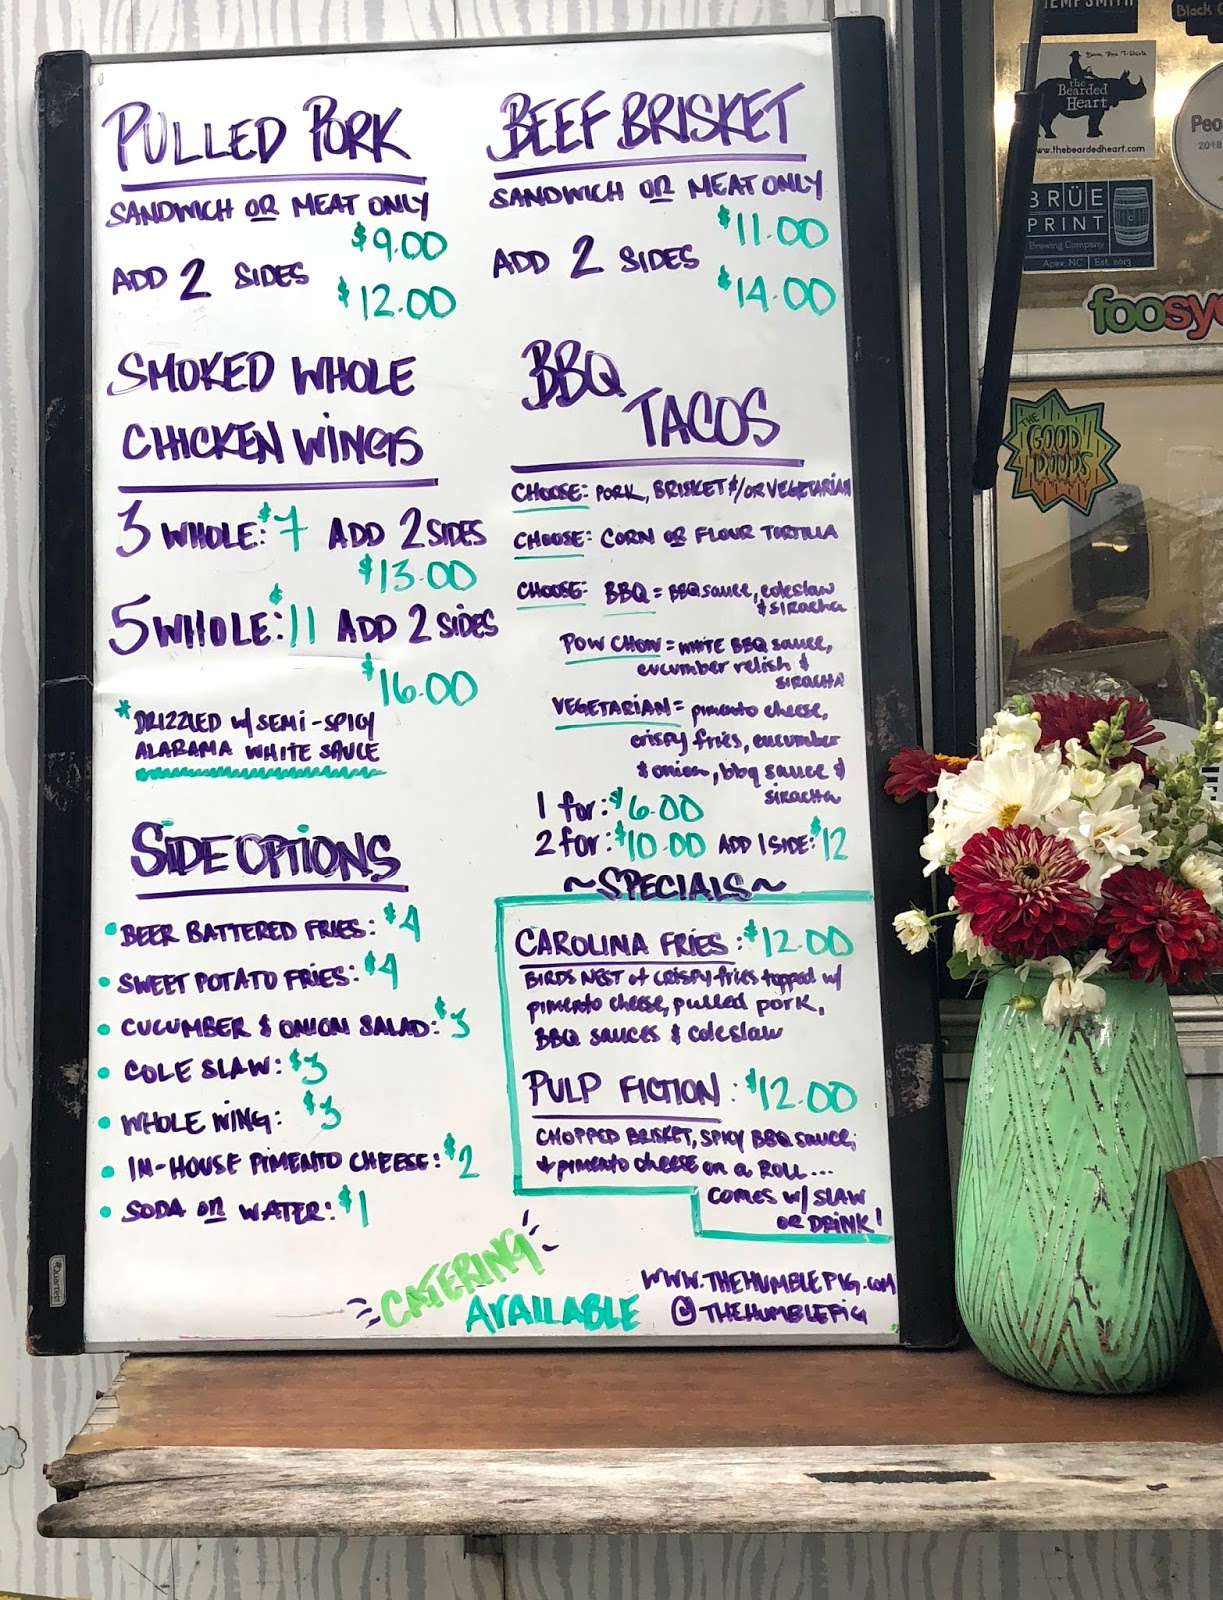 PULLED PORK
SANDWICH OR MEAT ONLY
$9.00
ADD 2 SIDES
$12.00
SMOKED WHOLE
CHICKEN WINGS
3 WHOLE: $7 ADD 2 SIDES
$13.00
5 WHOLE: $11 ADD 2 SIDES
$16.00
* DRIZZLED W/ SEMI-SPICY
ALABAMA WHITE SAUCE
SIDE OPTIONS
• BEER BATTERED FRIES: $4
• SWEET POTATO FRIES: $4
• CUCUMBER & ONION SALAD: $3
• COLE SLAW: $3
• WHOLE WING: $3
• IN-HOUSE PIMENTO CHEESE: $2
• SODA OR WATER: $1
BEEF BRISKET
SANDWICH OR MEAT ONLY
$11.00
ADD 2 SIDES
$14.00
BBQ
TACOS
CHOOSE: PORK, BRISKET &/OR VEGETARIAN
CHOOSE: CORN OR FLOUR TORTILLA
CHOOSE: BBQ = BBQ sauce, coleslaw
& siracha
POW CHOW = WHITE BBQ sauce,
cucumber relish &
SIRACHA
VEGETARIAN = pimento cheese,
crispy fries, cucumber
& onion, bbq sauce &
siracha
1 for: $6.00
2 for: $10.00 ADD 1 SIDE: $12
~SPECIALS~
CAROLINA FRIES: $12.00
BIRDS NEST of CRISPY fries topped w/
pimento cheese, pulled pork,
BBQ sauces & coleslaw
PULP FICTION: $12.00
CHOPPED BRISKET, SPICY BBQ sauce,
& pimento cheese on a ROLL...
COMES W/ SLAW
OR DRINK!
CATERING
AVAILABLE
WWW.THEHUMBLEPIG.COM
@THEHUMBLEPIG
Quartet
HEMPSMITH
the
Bearded
Heart
www.thebeardedheart.com
Black
Peo
2018
BRÜE
PRINT
Brewing Company
Apex NC Est. 2013
foosye
THE
GOOD
DOODS